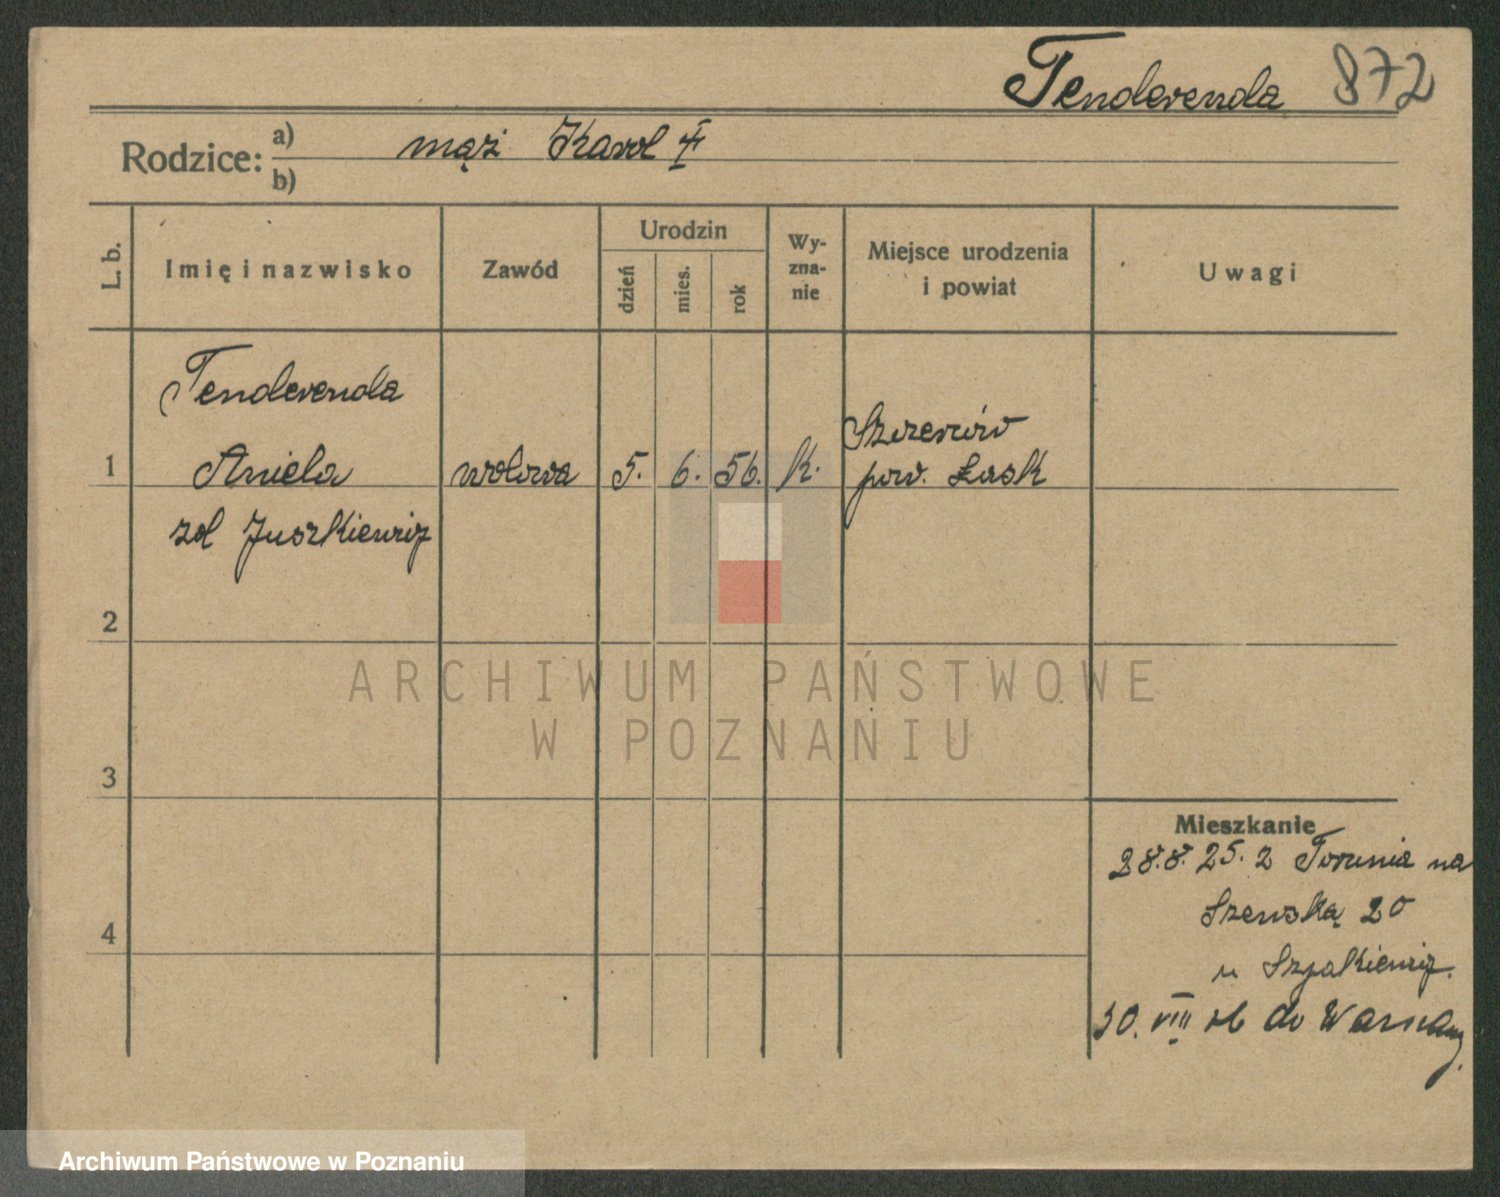 Tenderenda 872
Rodzice: a) mąż Karol
b)
L. b.
Imię i nazwisko
Zawód
Urodzin
dzień
mies.
rok
Wy-
zna-
nie
Miejsce urodzenia
i powiat
Uwagi
Tenderenda
1 Aniela wdowa 5. 6. 56. k. Szczerców
pow. Łask
zd Juszkiewicz
2
3
4
Mieszkanie
28.8.25. z Torunia na
Szewską 20
u Szpalkiewicz.
30. VIII do Warszawy.
ARCHIWUM PAŃSTWOWE
W POZNANIU
Archiwum Państwowe w Poznaniu